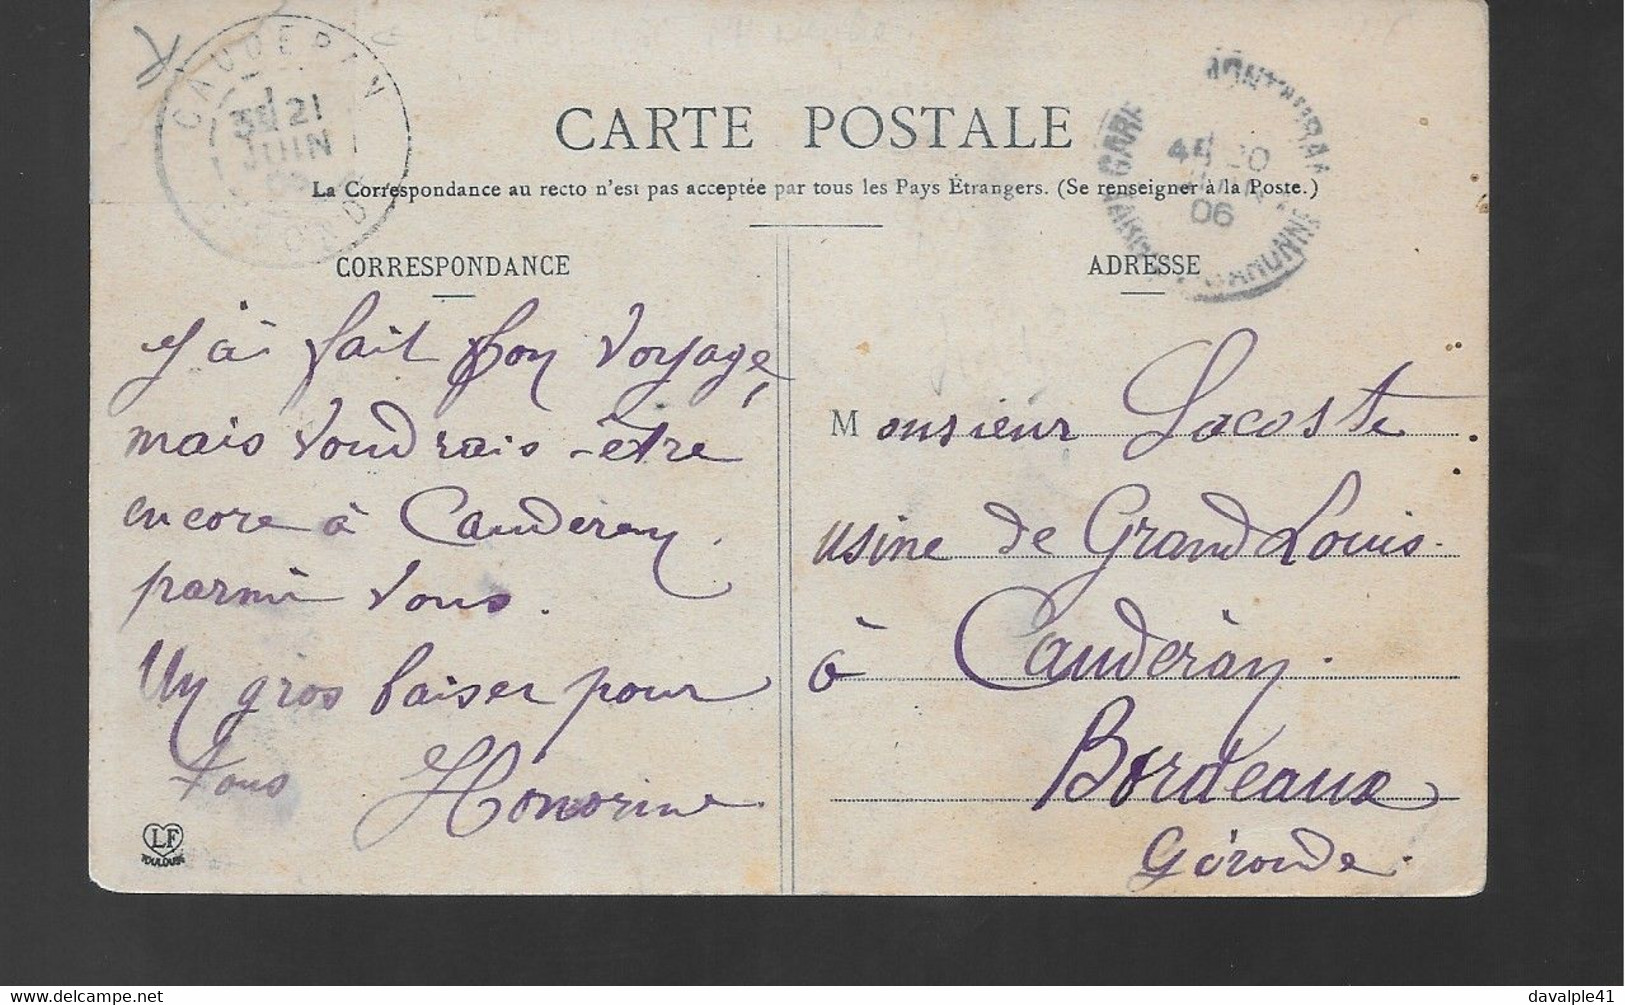 CAUDERAN
3E 21
JUIN
CARTE POSTALE
GARE
20
06
La Correspondance au recto n'est pas acceptée par tous les Pays Étrangers. (Se renseigner à la Poste.)
CORRESPONDANCE
j'ai fait bon voyage,
mais voudrais-être
encore à Cauderan.
parmi vous.
Un gros baiser pour
tous Honorine
LF
TOULOUSE
ADRESSE
Monsieur Lacoste
usine de Grand Louis.
à Caudéran.
Bordeaux
Gironde.
www.delcampe.net
davalple41